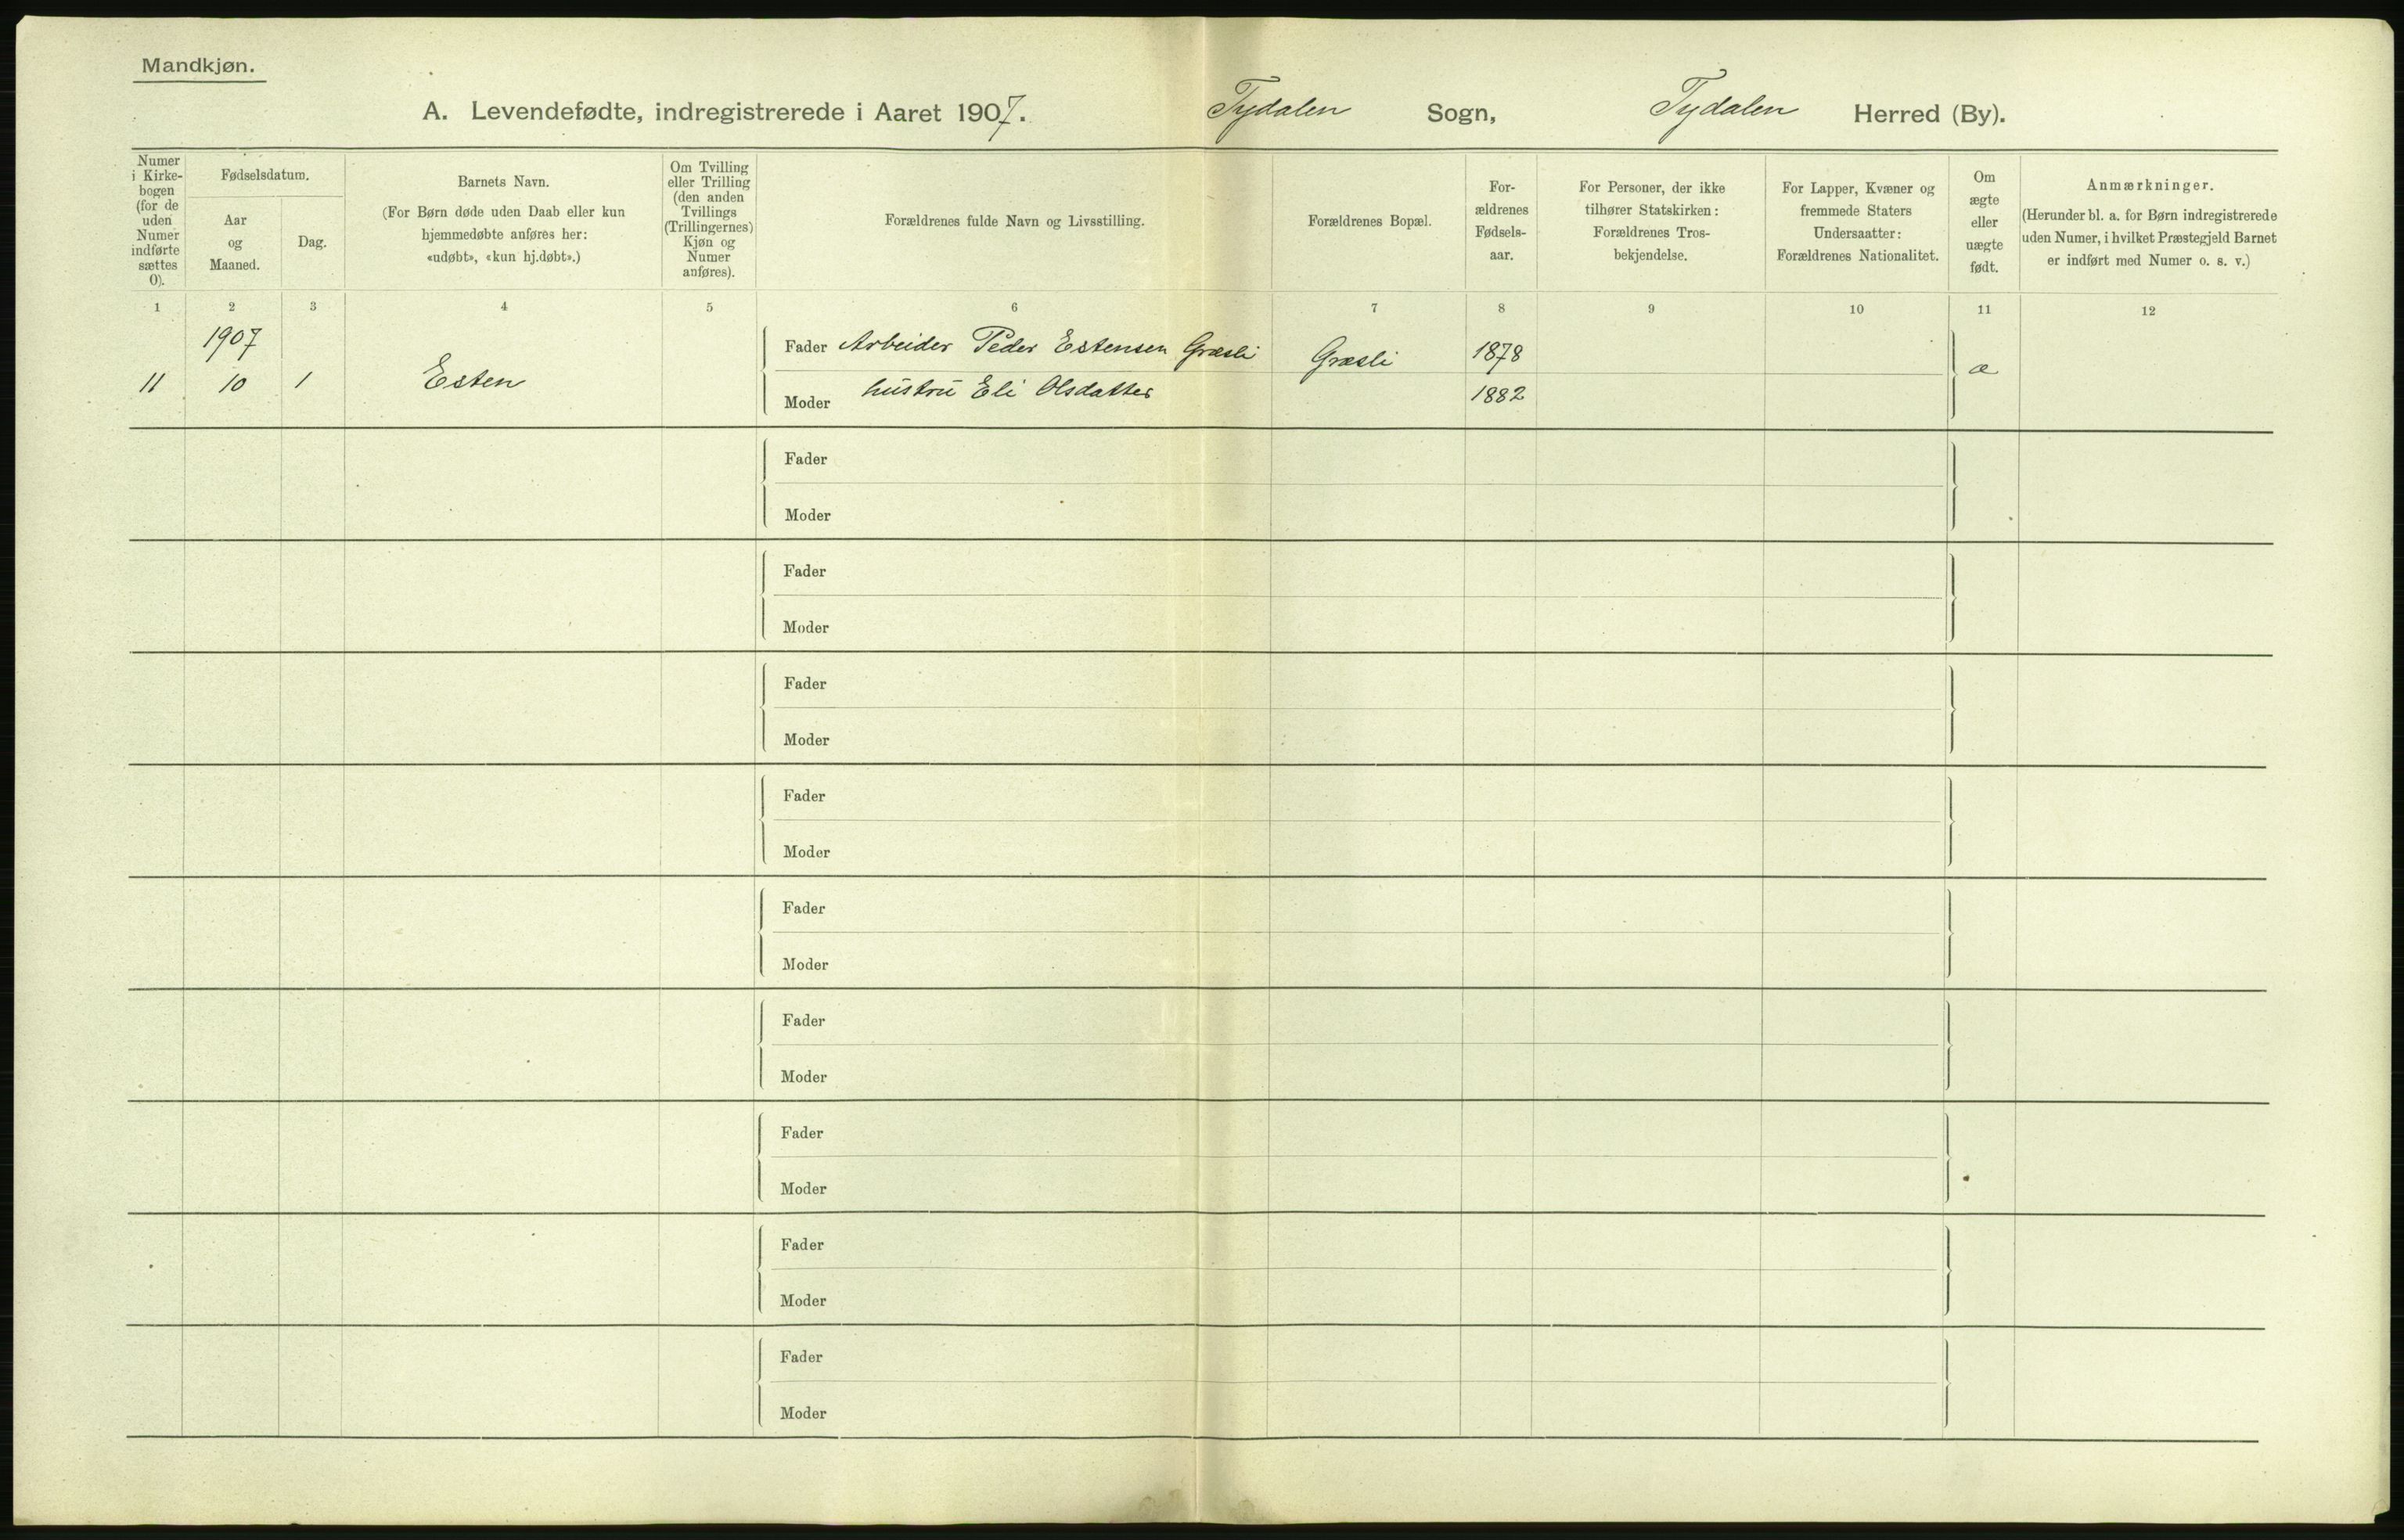 Mandkjøn.
A. Levendefødte, indregistrerede i Aaret 1907. Tydalen Sogn, Tydalen Herred (By).
Numer
i Kirke-
bogen
(for de
uden
Numer
indførte
sættes
0).
Fødselsdatum.
Aar
og
Maaned.
Dag.
Barnets Navn.
(For Børn døde uden Daab eller kun
hjemmedøbte anføres her:
«udøbt», «kun hj.døbt».)
Om Tvilling
eller Trilling
(den anden
Tvillings
(Trillingernes)
Kjøn og
Numer
anføres).
Forældrenes fulde Navn og Livsstilling.
Forældrenes Bopæl.
For-
ældrenes
Fødsels-
aar.
For Personer, der ikke
tilhører Statskirken:
Forældrenes Tros-
bekjendelse.
For Lapper, Kvæner og
fremmede Staters
Undersaatter:
Forældrenes Nationalitet.
Om
ægte
eller
uægte
født.
Anmærkninger.
(Herunder bl. a. for Børn indregistrerede
uden Numer, i hvilket Præstegjeld Barnet
er indført med Numer o. s. v.)
1 2 3 4 5 6 7 8 9 10 11 12
1907
Fader Arbeider Peder Estensen Græsli Græsli 1878
11 10 1 Esten æ
Moder hustru Eli Olsdatter 1882
Fader
Moder
Fader
Moder
Fader
Moder
Fader
Moder
Fader
Moder
Fader
Moder
Fader
Moder
Fader
Moder
Fader
Moder